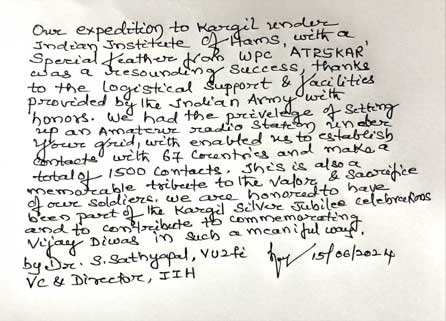 Our expedition to Kargil under
Indian Institute of Hams, with a
Special feather from WPC 'AT25KAR'
was a resounding success, thanks
to the logistical support & facilities
provided by the Indian Army with
honors. We had the privelege of setting
up an Amateur radio station under
your grid, with enabled us to establish
contacts with 67 Countries and make a
total of 1500 contacts. This is also a
memorable tribute to the Valor & Sacrifice
of our Soldiers. we are honored to have
been part of the Kargil Silver Jubilee celebrations
and to contribute to commemorating
Vijay Diwas in such a meaniful way.
by Dr. S. Sathyapal, VU2FI 15/06/2024
VC & Director, IIH